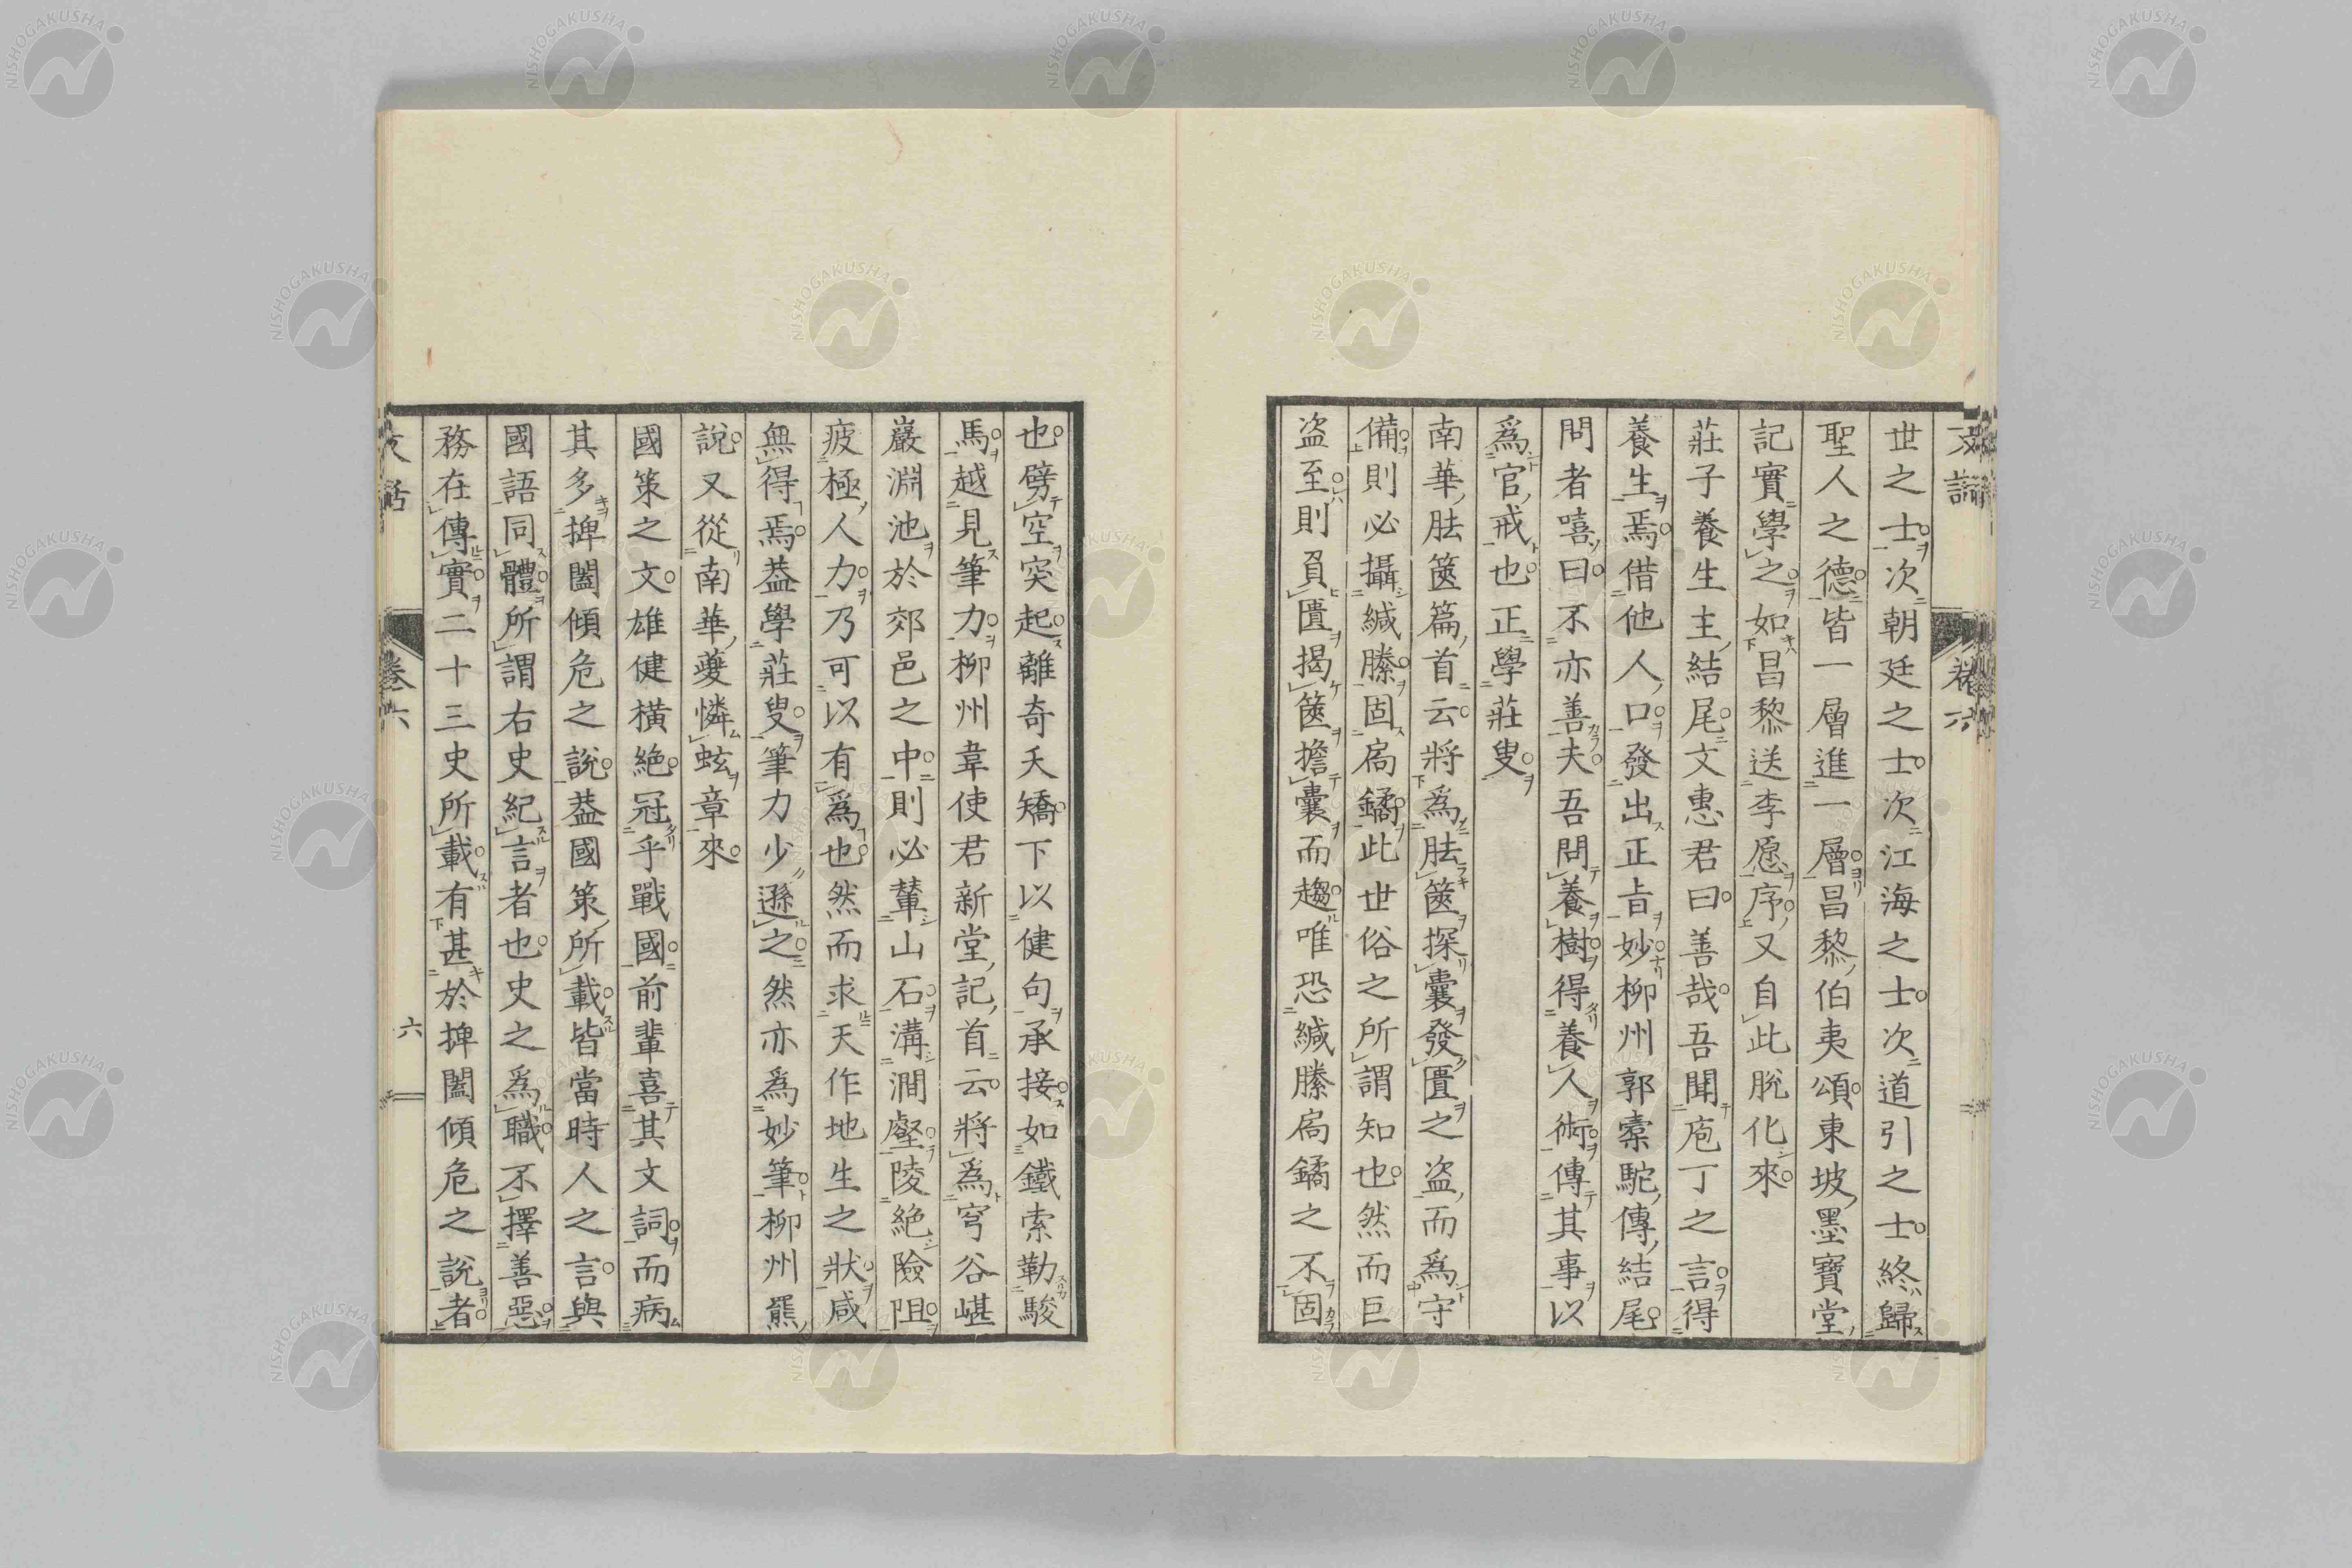 世之士次朝廷之士次江海之士次道引之士終歸
聖人之德皆一層進一層昌黎伯夷頌東坡墨寶堂
記實學之如昌黎送李愿序又自此脫化來
莊子養生主結尾文惠君曰善哉吾聞庖丁之言得
養生焉借他人口發出正旨妙柳州郭橐駝傳結尾
問者嘻曰不亦善夫吾問養樹得養人術傳其事以
爲官戒也正學莊叟
南華胠篋篇首云將爲胠篋探囊發匱之盜而爲守
備則必攝緘縢固扃鐍此世俗之所謂知也然而巨
盜至則負匱揭篋擔囊而趨唯恐緘縢扃鐍之不固
也劈空突起離奇夭矯下以健句承接如鐵索勒駿
馬越見筆力柳州韋使君新堂記首云將爲穹谷嵁
巖淵池於郊邑之中則必輦山石溝澗壑陵絕險阻
疲極人力乃可以有爲也然而求天作地生之狀咸
無得焉葢學莊叟筆力少遜之然亦爲妙筆柳州羆
說又從南華夔憐蚿章來
國策之文雄健橫絕冠乎戰國前輩喜其文詞而病
其多捭闔傾危之說葢國策所載皆當時人之言與
國語同體所謂右史紀言者也史之爲職不擇善惡
務在傳實二十三史所載有甚於捭闔傾危之說者
卷六
六
NISHOGAKUSHA